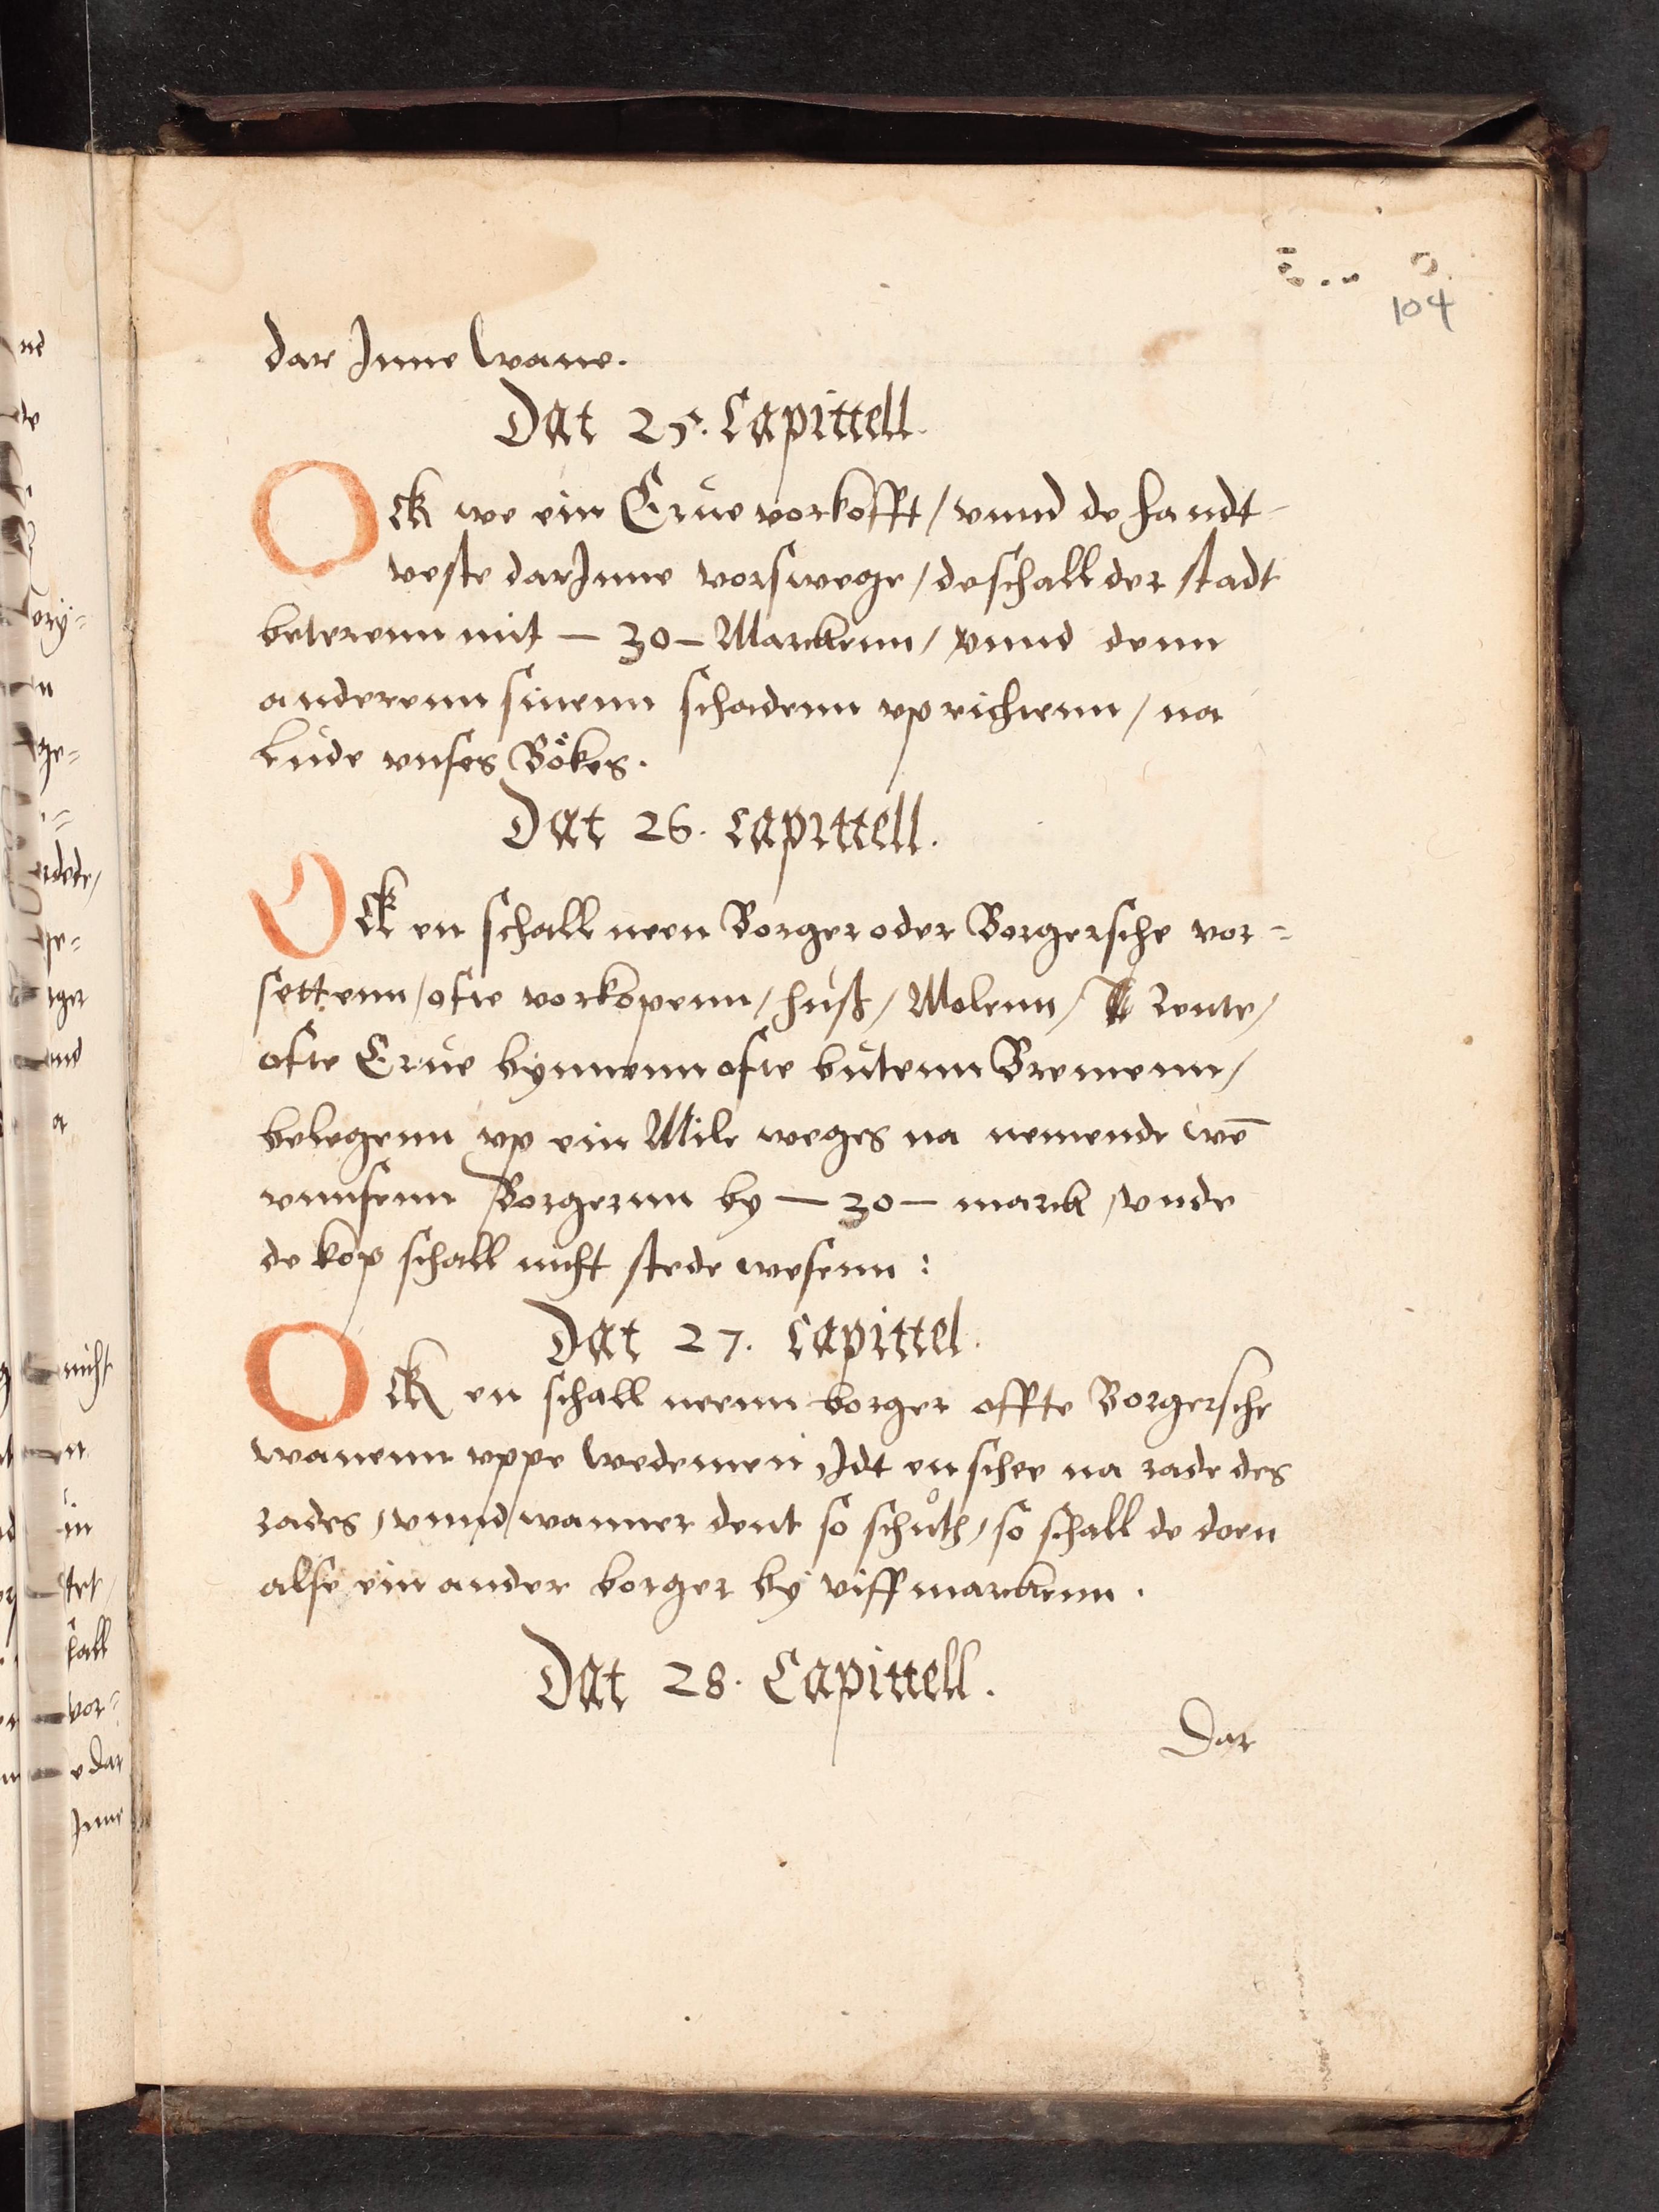 104
dar Inne wane.
Dat 25. Capittell.
Ock we ein Erue vorkofft / vnnd de handt-
veste darInne vorswege / de schall der stadt
beterenn mit — 30 — Marckenn / vnnd denn
anderenn sinenn schadenn vprichtenn / na
lude vnses Bökes.
Dat 26. Capittell.
Ock en schall neen Borger oder Borgersche vor=
settenn / ofte vorkopenn / huß / Molenn / Rente /
ofte Erue bynnenn ofte butenn Bremenn /
belegenn vp ein Mile weges na nemende wē
vnnsenn Borgernn by — 30 — marck / vnde
de kop schall nicht stede wesenn :
Dat 27. Capittel.
Ock en schall neenn borger offte Borgersche
wanenn vppe wedemen Idt en schee na rade des
rades / vnnd wanner dent so schuth / so schall de doen
alse ein ander borger by viff marckenn .
Dat 28. Capittell.
Dar